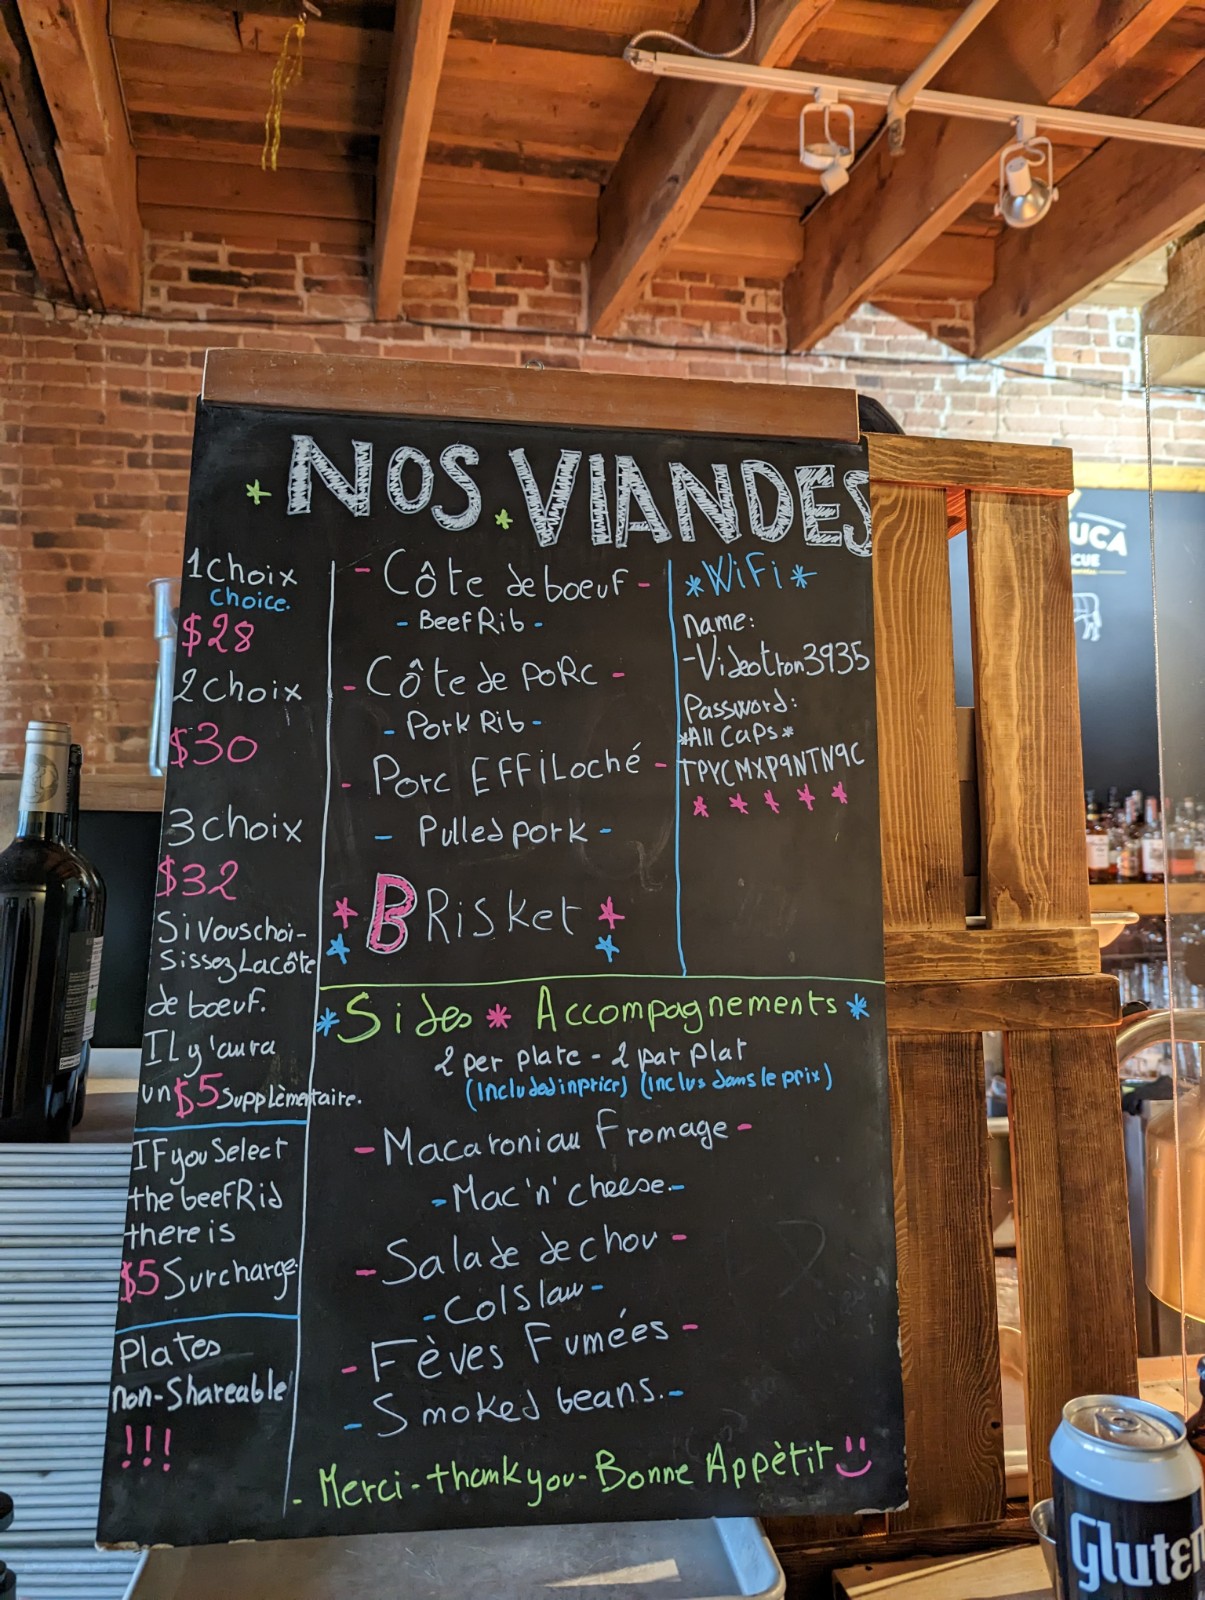 NOS VIANDES
1 Choix
choice.
$28
2 choix
$30
3 choix
$32
Si vous choi-
sissez La côte
de boeuf.
Il y'aura
un $5 Supplèmentaire.
IF you Select
the beef Rib
there is
$5 Surcharge.
Plates
non-Shareable
!!!
- Côte de boeuf -
- Beef Rib -
- Côte de PoRc -
- Pork Rib -
- Porc EFFiLoché -
- Pulled pork -
BRisket
*WiFi*
name:
-Videotron3935
Password:
*All Caps*
TPYCMXP9NTN9C
*Sides * Accompagnements*
2 per plate - 2 par plat
(Included in price) (Inclus dans le prix)
- Macaroni au Fromage -
- Mac'n'cheese.-
- Salade de chou -
- Colslaw -
- Fèves Fumées -
- Smoked beans.-
- Merci - thank you - Bonne Appètit
UCA
CUE
Gluten